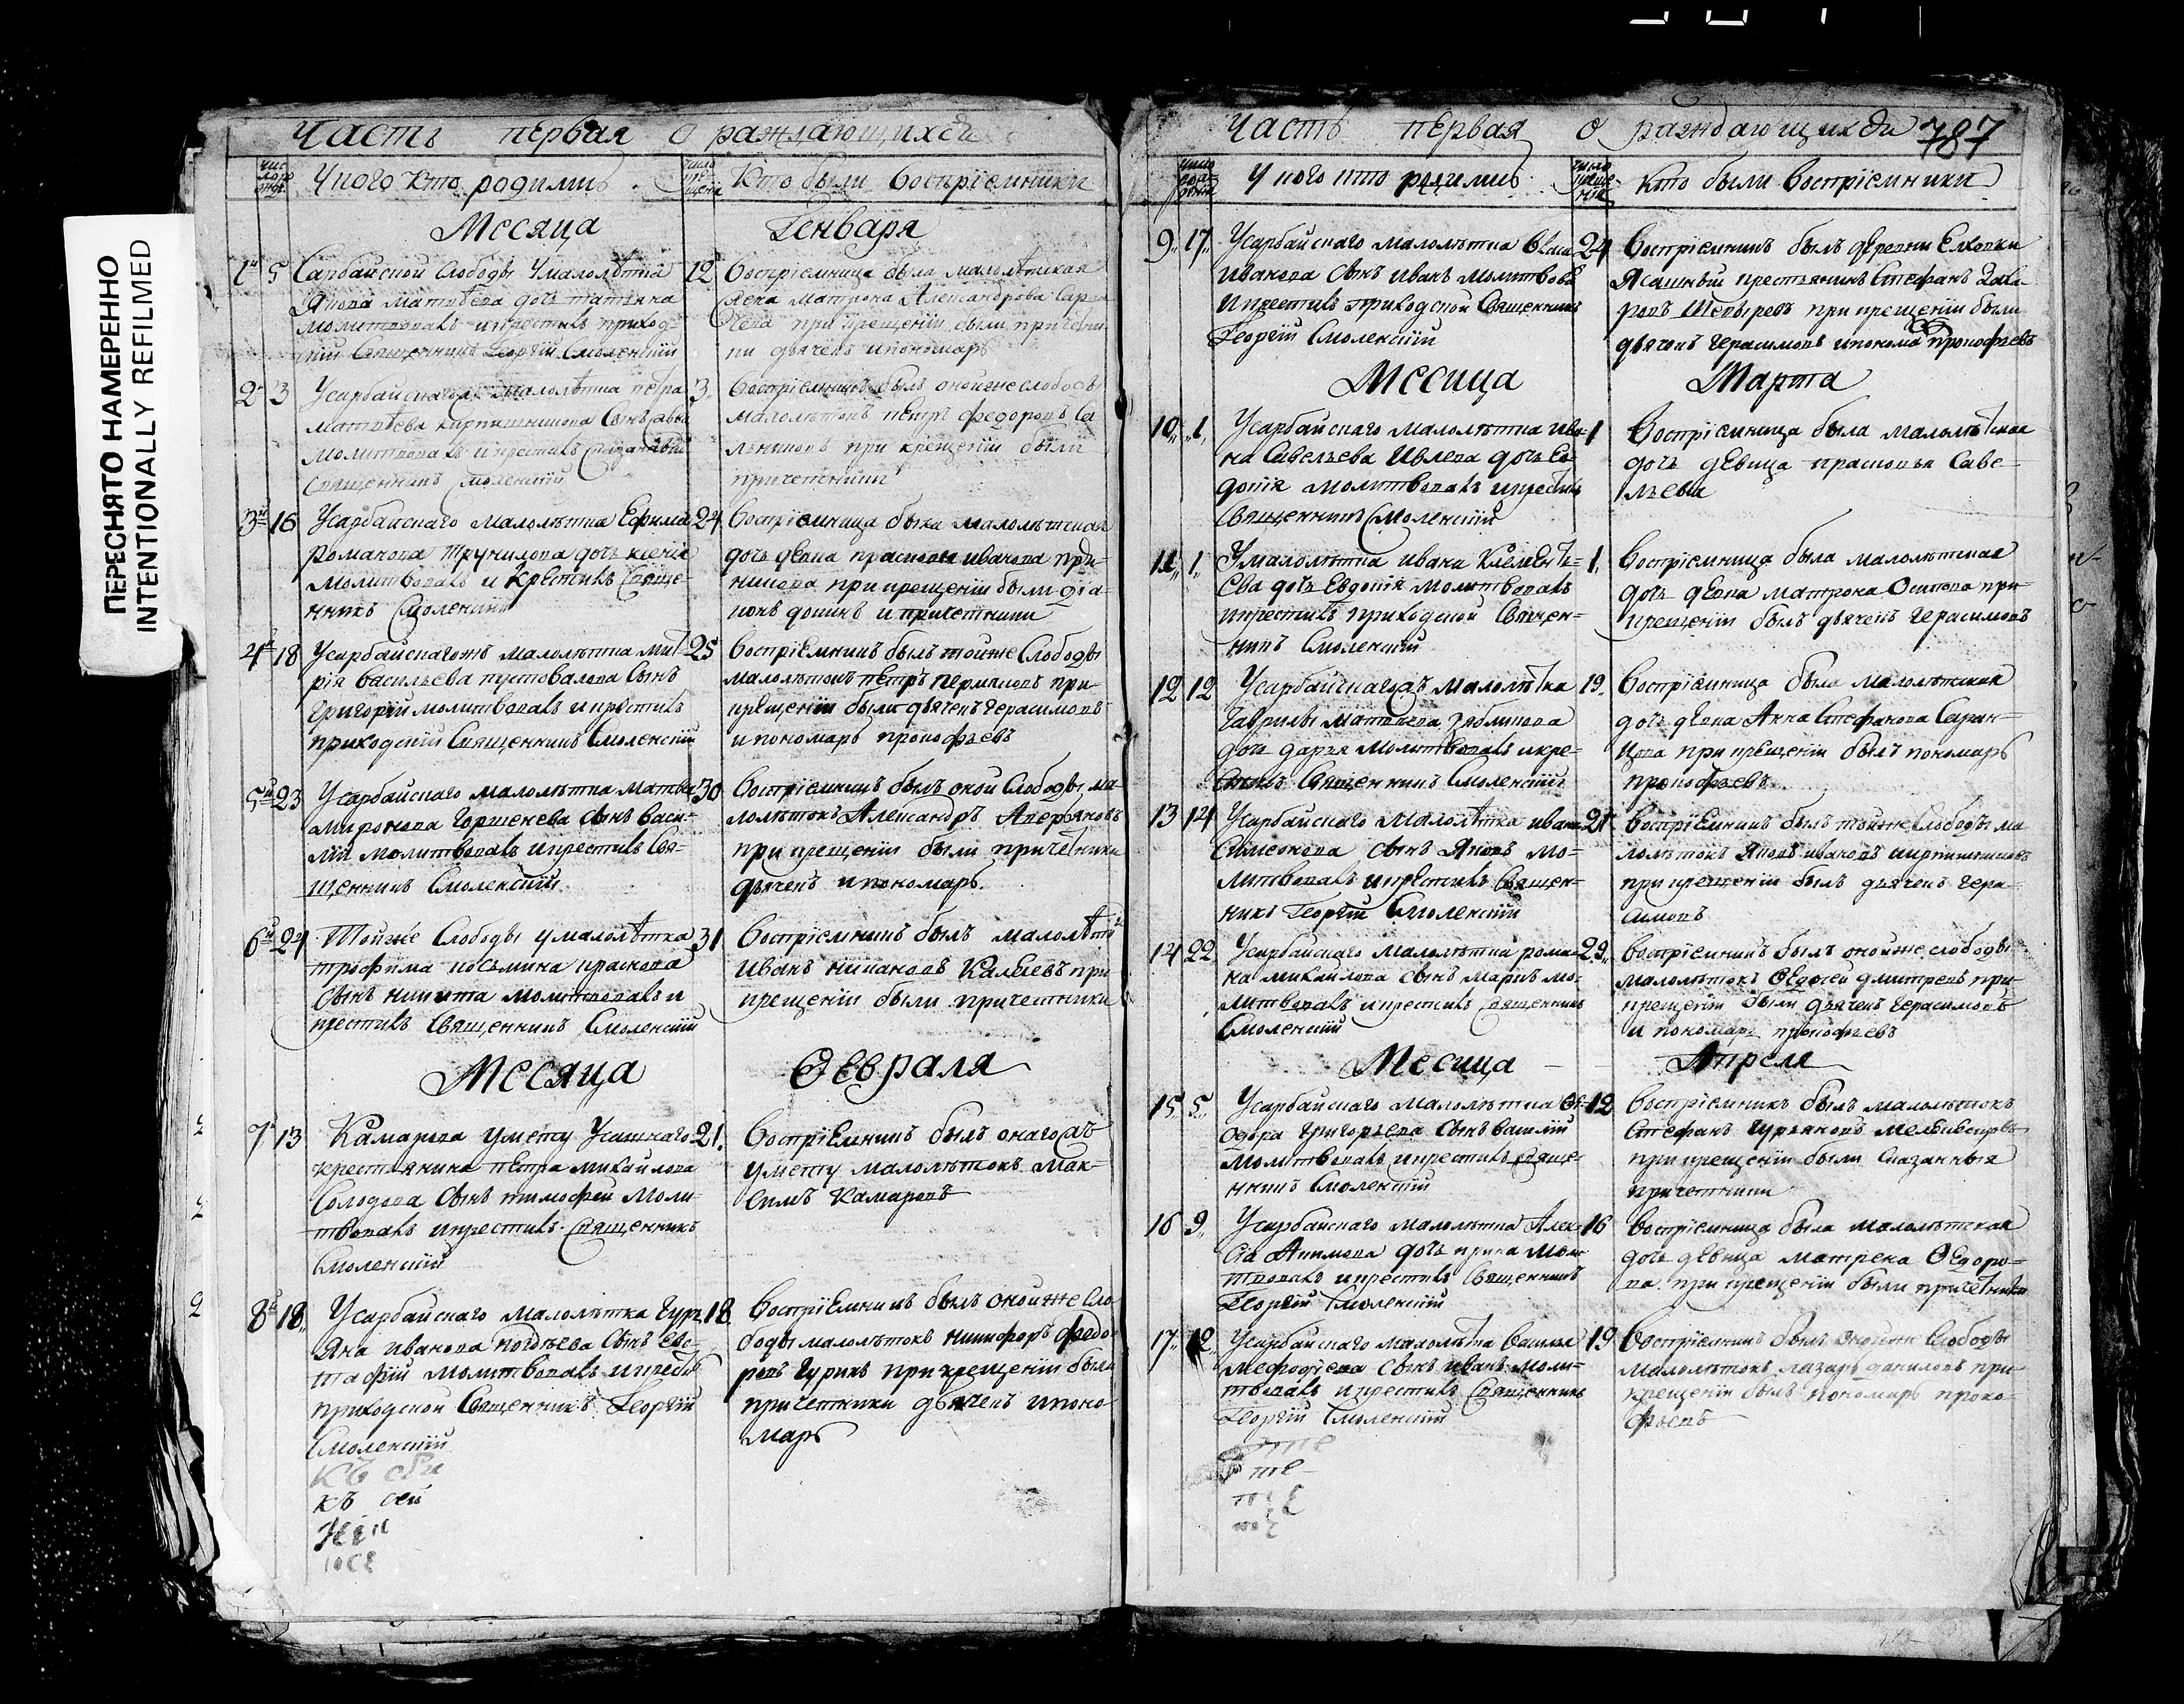 ПЕРЕСНЯТО НАМЕРЕННО
INTENTIONALLY REFILMED
Часть первая о раждающихся
У кого кто родились
Кто были воспрiемники
Месяца Генваря
1 5 Сарбайской слободы у малолѣтка
Якова Матвѣева дочь Татьяна
молитвовалъ и крестилъ приход-
скiй священникъ Георгiй Смоленскiй
12 Воспрiемница была малолѣтская
Матрона Алеѯандрова
при крещенiи были причетни-
ки дьячекъ и пономарь
2 3 Усарбайскаго малолѣтка Петра
Матвѣева Кирпишникова сынъ
молитвовалъ и крестилъ
священникъ Смоленскiй
3 Воспрiемникъ былъ оной же слободы
малолѣтокъ Петръ Федоровъ
при крещенiи были
причетники
3й 16 Усарбайскаго малолѣтка Ефима
Романова дочь Ксенiя
молитвовалъ и крестилъ свяще-
нникъ Смоленскiй
24 Воспрiемница была малолѣтская
дочь девка Прасковья Иванова
при крещенiи были дiа-
конъ и причетники
4й 18 Усарбайскагожъ малолѣтка Мит-
рiя Васильева Пустовалова сынъ
Григорiй молитвовалъ и крестилъ
приходскiй священникъ Смоленскiй
25 Воспрiемникъ былъ тойже слободы
малолѣтокъ Петръ Пермяковъ при
крещенiи были дьячекъ Герасимовъ
и пономарь Прокофьевъ
5й 23 Усарбайскаго малолѣтка Матвея
Миронова Горшенева сынъ Васи-
лiй молитвовалъ и крестилъ свя-
щенникъ Смоленскiй
30 Воспрiемникъ былъ оной слободы ма-
лолѣтокъ Алеѯандръ Аверьяновъ
при крещенiи были причетники
дьячекъ и пономарь
6й 24 Тойже слободы у малолѣтка
Трофима Косьмина
сынъ Никита молитвовалъ и
крестилъ священникъ Смоленскiй
31 Воспрiемникъ былъ малолѣтокъ
Иванъ при
крещенiи были причетники
Месяца Февраля
7 13 Камарова умету Усашнаго
крестьянина Петра Михайлова
Солодова сынъ Тимофей моли-
твовалъ и крестилъ священникъ
Смоленскiй
21 Воспрiемникъ былъ онагожъ
умету малолѣтокъ Мак-
симъ Камаровъ
8й 18 Усарбайскаго малолѣтка Гурь-
яна Иванова сынъ Евс-
тафiй молитвовалъ и крестилъ
приходской священникъ Георгiй
Смоленскiй
18 Воспрiемникъ былъ оной же сло-
боды малолѣтокъ Никифоръ Федо-
ровъ Гурихъ при крещенiи были
причетники дьячекъ и поно-
марь
къ
къ сей
Часть первая о раждающихся 787
У кого кто родились
Кто были воспрiемники
9 17 Усарбайскаго малолѣтка
Иванова сынъ Иванъ молитвовалъ
и крестилъ приходской священникъ
Георгiй Смоленскiй
24 Воспрiемникъ былъ деревни Елховки
ясашный крестьянинъ Стефанъ Заха-
ровъ Шевыревъ при крещенiи были
дьячекъ Герасимовъ и пономарь Прокофьевъ
Месяца Марта
10 1 Усарбайскаго малолѣтка Ива-
на Савельева Ивлева дочь Ев-
докiя молитвовалъ и крестилъ
священникъ Смоленскiй
1 Воспрiемница была малолѣтская
дочь девица Прасковья Саве-
льева
11 1 У малолѣтка Ивана Клемен-
ева дочь Евдокiя молитвовалъ
и крестилъ приходской священ-
никъ Смоленскiй
1 Воспрiемница была малолѣтская
дочь девка Матрона Осипова при
крещенiи былъ дьячекъ Герасимовъ
12 12 Усарбайскагожъ малолѣтка
Гаврилы Матвѣева Зяблинова
дочь Дарья молитвовалъ и кре-
стилъ священникъ Смоленскiй
19 Воспрiемница была малолѣтская
дочь девка Анна Стефанова Саран-
цова при крещенiи былъ пономарь
Прокофьевъ
13 14 Усарбайскаго малолѣтка Ивана
Симеонова сынъ Яковъ мо-
литвовалъ и крестилъ священ-
никъ Георгiй Смоленскiй
21 Воспрiемникъ былъ тойже слободы ма
лолѣтокъ Яковъ Ивановъ Кирпишниковъ
при крещенiи былъ дьячекъ Гера-
симовъ
14 22 Усарбайскаго малолѣтка Рома-
на Михайлова сынъ Маркъ мо-
литвовалъ и крестилъ священникъ
Смоленскiй
29 Воспрiемникъ былъ оной же слободы
малолѣтокъ Дмитревъ при
крещенiи были дьячекъ Герасимовъ
и пономарь Прокофьевъ
Месяца Апреля
15 5 Усарбайскаго малолѣтка Фе-
одора Григорьева сынъ Василiй
молитвовалъ и крестилъ свяще-
нникъ Смоленскiй
12 Воспрiемникъ былъ малолѣтокъ
Стефанъ Гурьяновъ
при крещенiи были сказанныя
причетники
16 9 Усарбайскаго малолѣтка Алек-
сiя Акимова дочь Ирина моли-
твовалъ и крестилъ священникъ
Георгiй Смоленскiй
16 Воспрiемница была малолѣтская
дочь девица Матрена Ѳедоро-
ва при крещенiи были причетники
17 12 Усарбайскаго малолѣтка Василья
Мефодiева сынъ Иванъ моли-
твовалъ и крестилъ священникъ
Георгiй Смоленскiй
19 Воспрiемникъ былъ онойже слободы
малолѣтокъ Лазарь Даниловъ при
крещенiи былъ пономарь Проко-
фьевъ